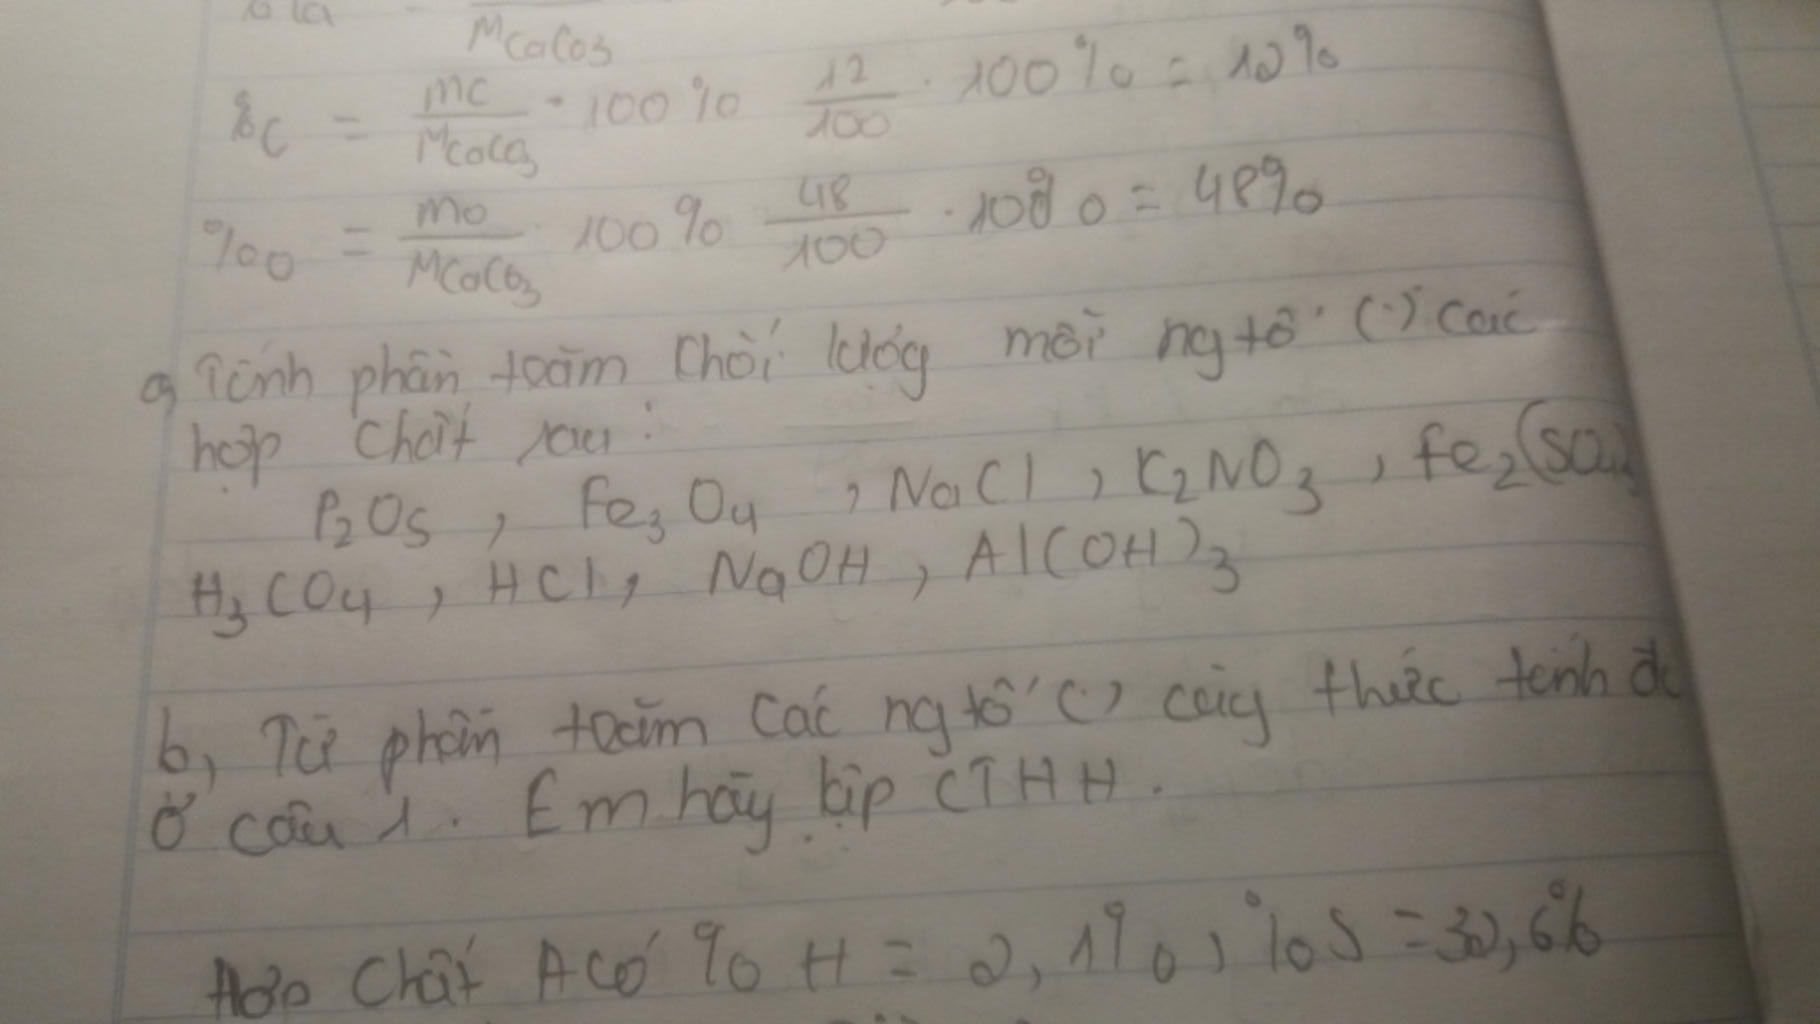 M CaCO3
%C = mC / M CaCO3 . 100% 12/100 . 100% = 12%
%O = mO / M CaCO3 100% 48/100 . 100% = 48%
a, Tính phần trăm khối lượg mỗi ng tố (.) các
hợp chất sau:
P2O5, Fe3O4, NaCl, K2NO3, Fe2(SO4)
H3CO4, HCl, NaOH, Al(OH)3
b, Từ phần trăm các ng tố (.) côg thức tính đc
ở câu 1. Em hãy lập CTHH.
Hợp chất A có %H = 2,1%, %S = 32,6%